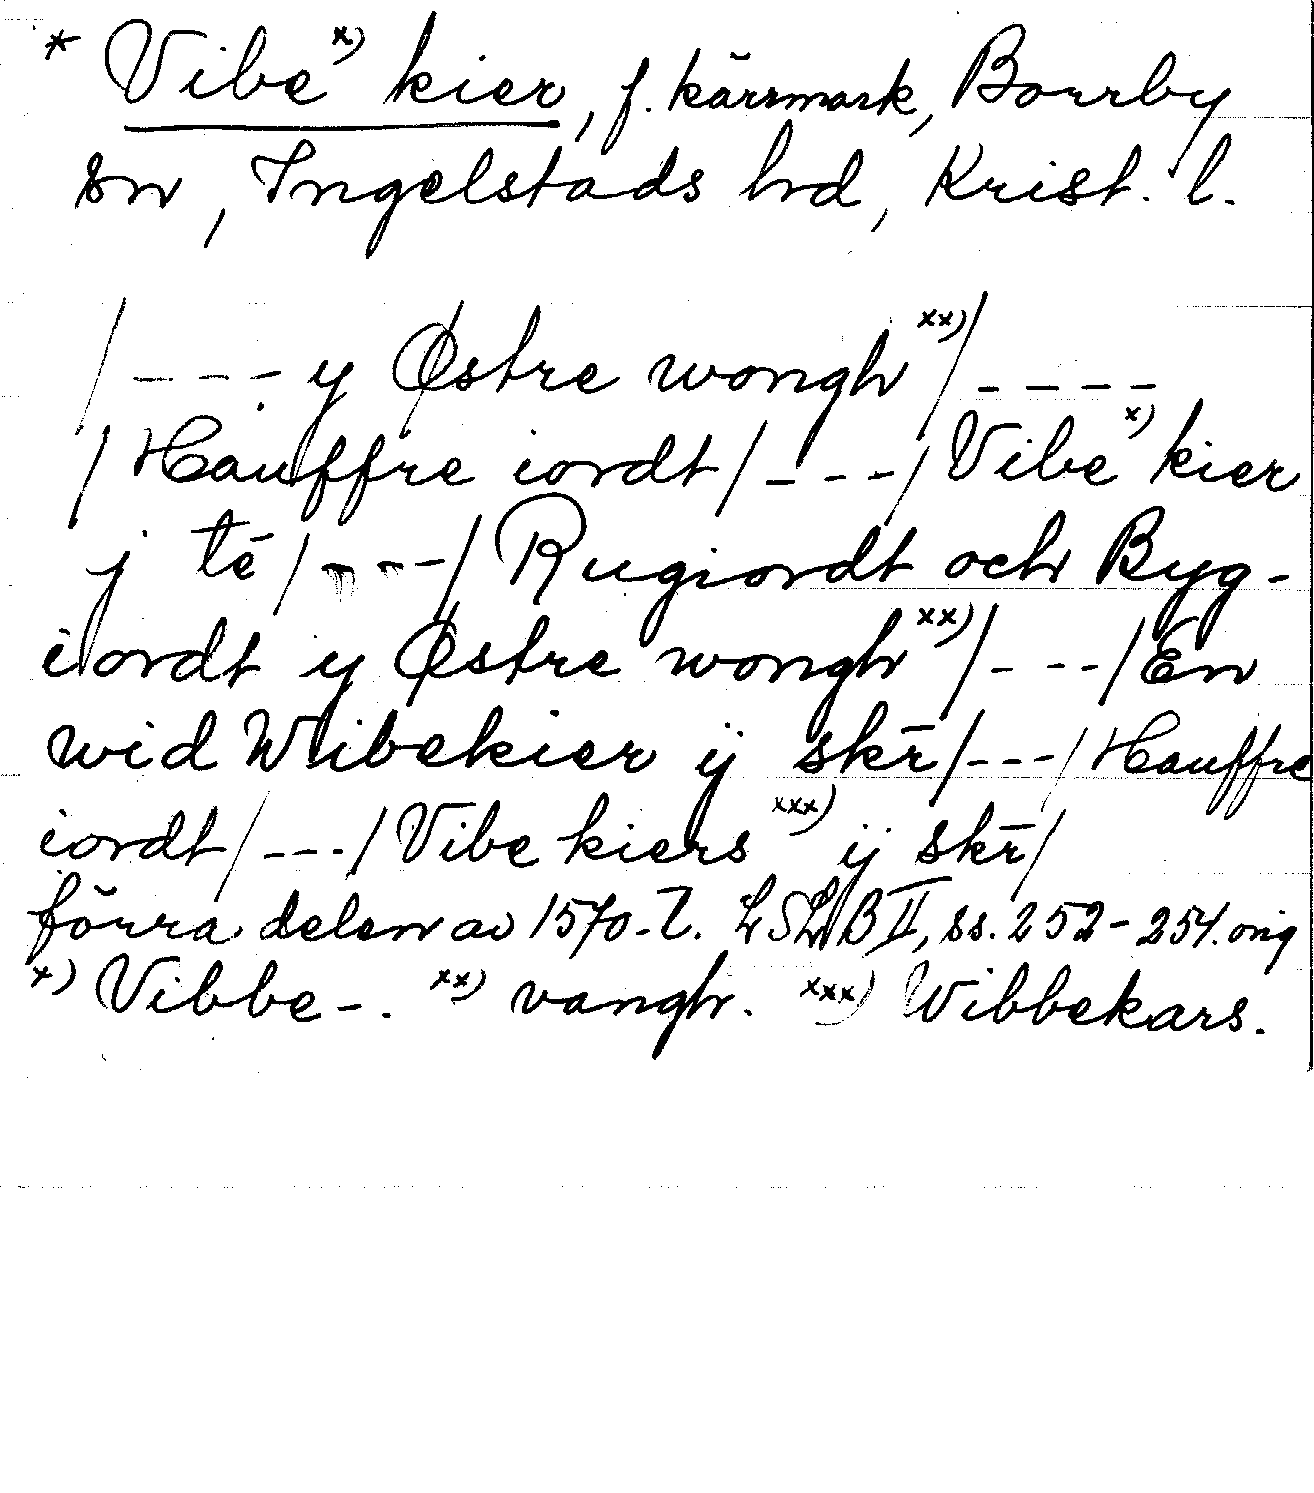 * Vibe x) kier, f. kärrmark, Borrby
sn, Ingelstads hd, Krist. l.
/--- y Østre wongh xx)/----
/Hauffre iordt/---/Vibe x) kier
j tē/---/Rugiordt och Byg-
iordt y Østre wongh xx)/---/En
wid Wibekier ij skr̄/---/Hauffre
iordt/---/Vibe kiers xxx) ij skr̄/
förra delen av 1570-t. LSLB II, ss. 252-254. orig
x) Vibbe-. xx) vangh. xxx) Wibbekars.